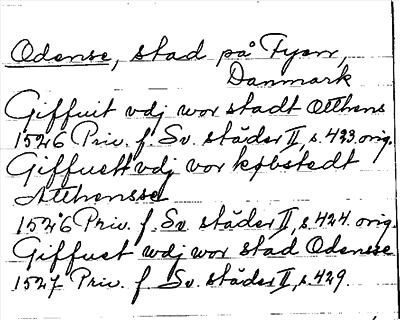 Odense, stad på Fyen,
Danmark
Giffuit vdj wor stadt Otthens
1526 Priv. f. Sv. städer II, s. 423. orig.
Giffuett vdj vor købstedt
Atthensse
1526 Priv. f. Sv. städer II, s. 424. orig.
Giffuet wdj wor stad Odensse
1527 Priv. f. Sv. städer II, s. 429.